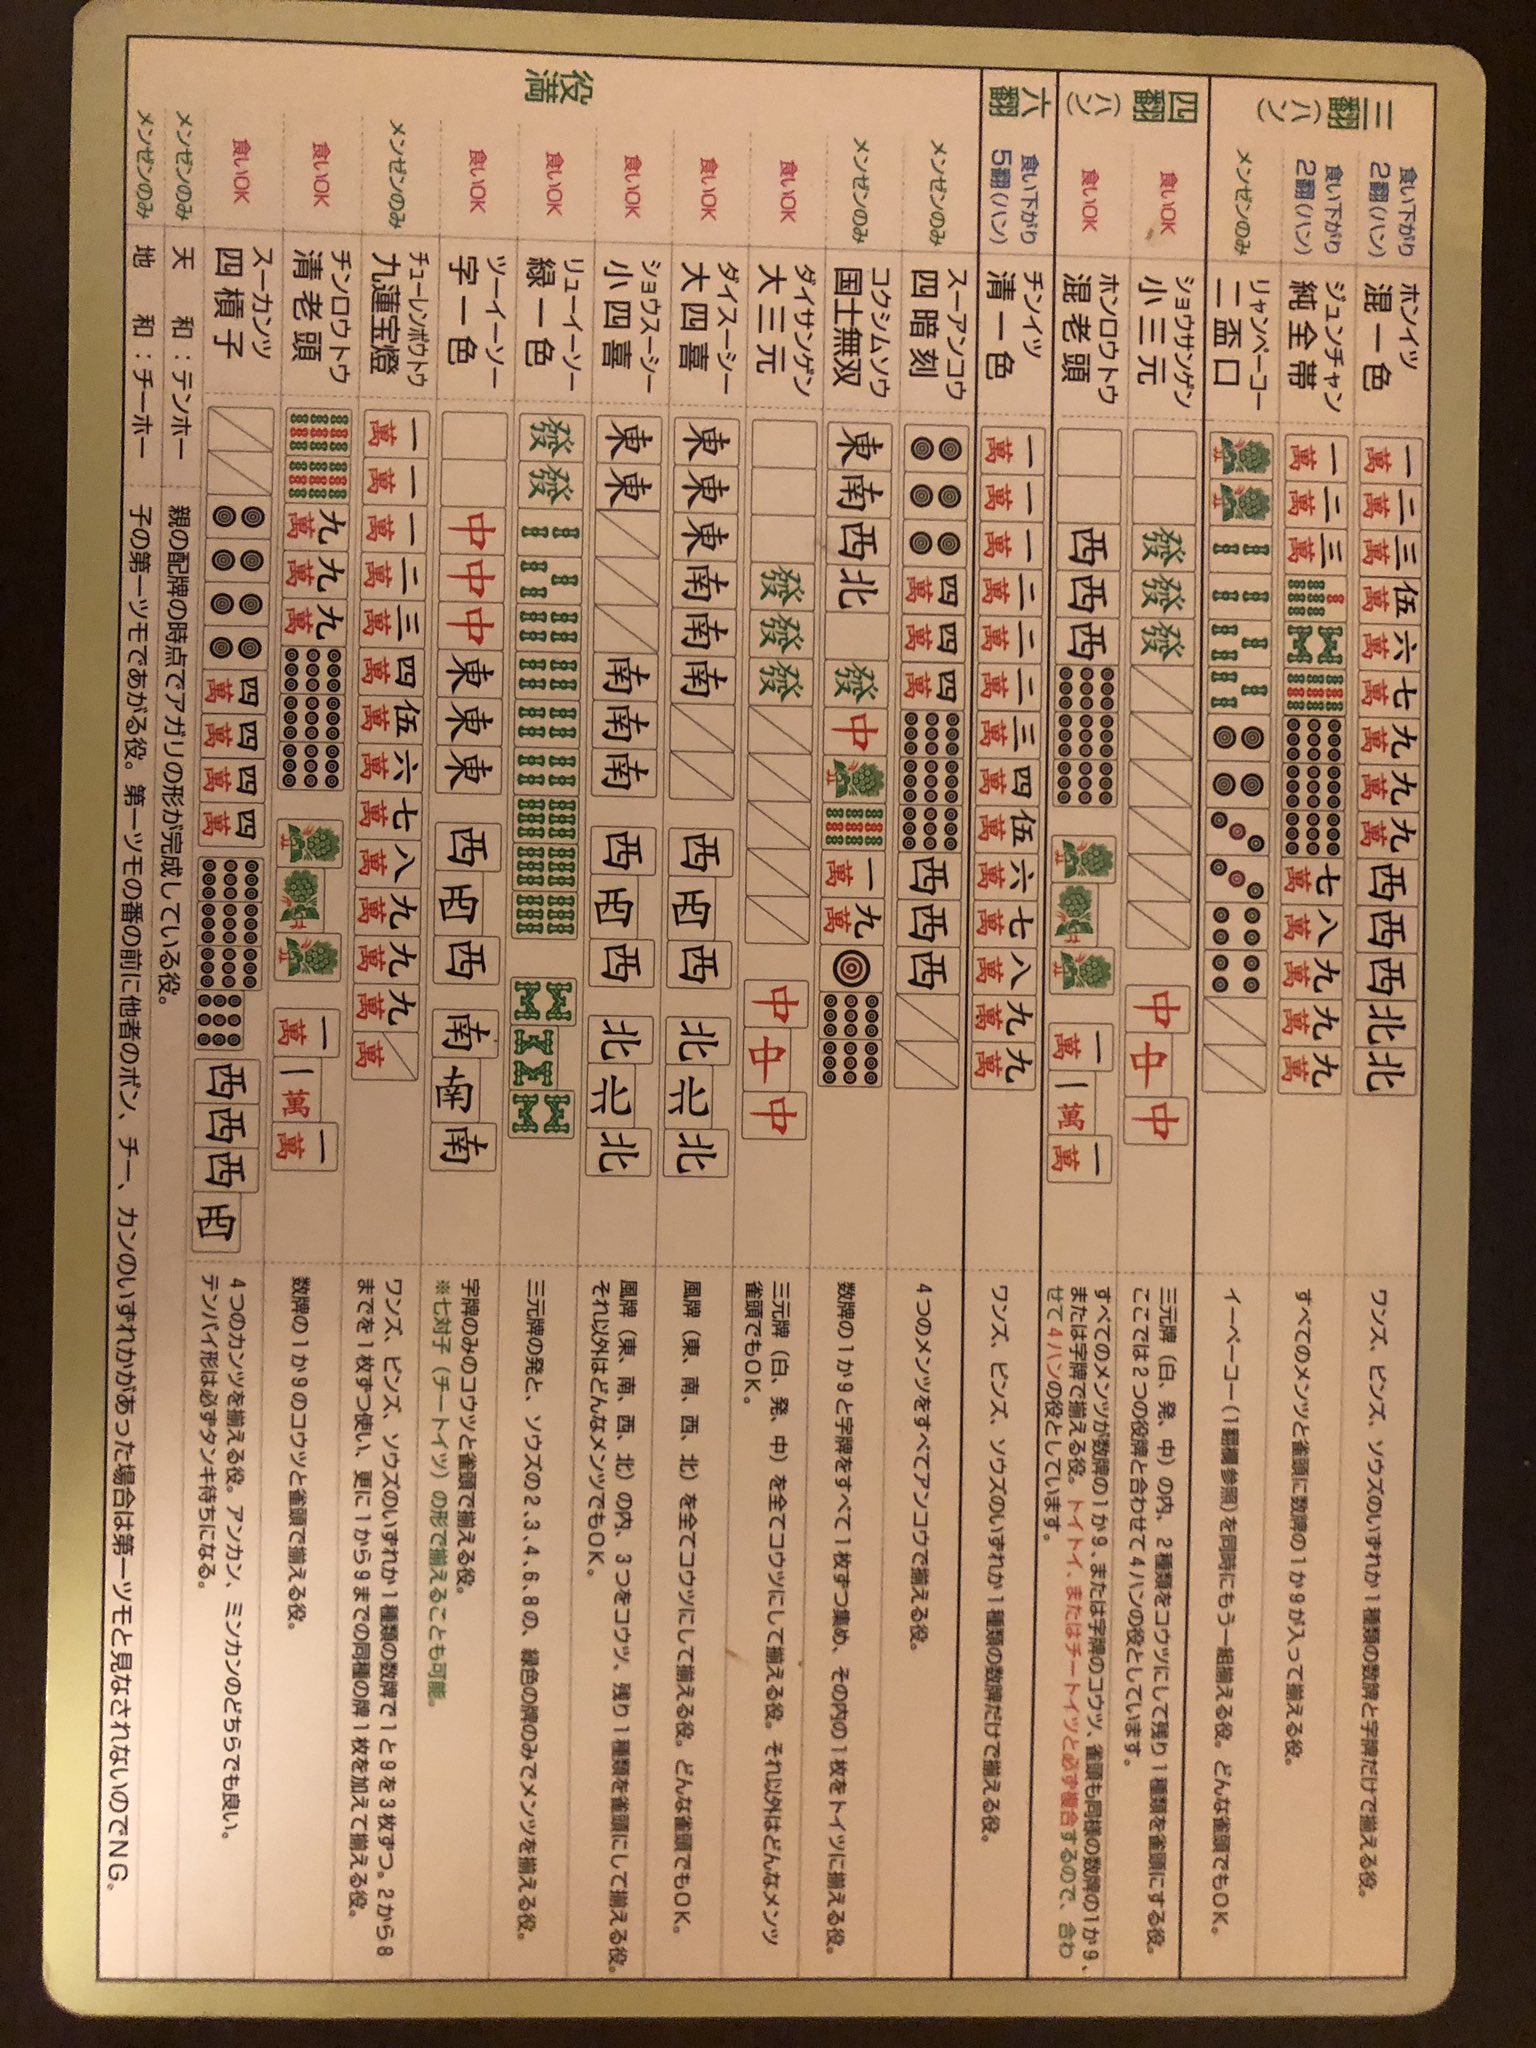 三翻(ハン)
食い下がり
2翻(ハン)
ホンイツ
混一色
一萬 二萬 三萬 伍萬 六萬 七萬 九萬 九萬 九萬 西 西 西 北 北
ワンズ、ピンズ、ソウズのいずれか1種類の数牌と字牌だけで揃える役。
食い下がり
2翻(ハン)
ジュンチャン
純全帯
一萬 二萬 三萬 七萬 八萬 九萬 九萬 九萬
すべてのメンツと雀頭に数牌の1か9が入って揃える役。
メンゼンのみ
リャンペーコー
二盃口
イーペーコー(1翻欄参照)を同時にもう一組揃える役。どんな雀頭でもOK。
四翻(ハン)
食いOK
ショウサンゲン
小三元
發 發 發 中 中 中
三元牌(白、発、中)の内、2種類をコウツにして残り1種類を雀頭にする役。
ここでは2つの役牌と合わせて4ハンの役としています。
食いOK
ホンロウトウ
混老頭
西 西 西 一萬 一萬 一萬
すべてのメンツが数牌の1か9、または字牌のコウツ、雀頭も同様の数牌の1か9、
または字牌で揃える役。トイトイ、またはチートイツと必ず複合するので、合わ
せて4ハンの役としています。
六翻
食い下がり
5翻(ハン)
チンイツ
清一色
一萬 一萬 一萬 二萬 二萬 二萬 三萬 四萬 伍萬 六萬 七萬 八萬 九萬 九萬
ワンズ、ピンズ、ソウズのいずれか1種類の数牌だけで揃える役。
役満
メンゼンのみ
スーアンコウ
四暗刻
四萬 四萬 四萬 西 西 西
4つのメンツをすべてアンコウで揃える役。
メンゼンのみ
コクシムソウ
国士無双
東 南 西 北 發 中 一萬 九萬
数牌の1か9と字牌をすべて1枚ずつ集め、その内の1枚をトイツに揃える役。
食いOK
ダイサンゲン
大三元
發 發 發 中 中 中
三元牌(白、発、中)を全てコウツにして揃える役。それ以外はどんなメンツ
雀頭でもOK。
食いOK
ダイスーシー
大四喜
東 東 東 南 南 南 西 西 西 北 北 北
風牌(東、南、西、北)を全てコウツにして揃える役。どんな雀頭でもOK。
食いOK
ショウスーシー
小四喜
東 東 南 南 南 西 西 西 北 北 北
風牌(東、南、西、北)の内、3つをコウツ、残り1種類を雀頭にして揃える役。
それ以外はどんなメンツでもOK。
食いOK
リューイーソー
緑一色
發 發
三元牌の発と、ソウズの2、3、4、6、8の、緑色の牌のみでメンツを揃える役。
食いOK
ツーイーソー
字一色
中 中 中 東 東 東 西 西 西 南 南 南
字牌のみのコウツと雀頭で揃える役。
※七対子(チートイツ)の形で揃えることも可能。
メンゼンのみ
チューレンポウトウ
九蓮宝燈
一萬 一萬 一萬 二萬 三萬 四萬 伍萬 六萬 七萬 八萬 九萬 九萬 九萬
ワンズ、ピンズ、ソウズのいずれか1種類の数牌で1と9を3枚ずつ。2から8
までを1枚ずつ使い、更に1から9までの同種の牌1枚を加えて揃える役。
食いOK
チンロウトウ
清老頭
九萬 九萬 九萬 一萬 一萬 一萬
数牌の1か9のコウツと雀頭で揃える役。
食いOK
スーカンツ
四槓子
四萬 四萬 四萬 四萬 西 西 西 西
4つのカンツを揃える役。アンカン、ミンカンのどちらでも良い。
テンパイ形は必ずタンキ待ちになる。
メンゼンのみ
天 和:テンホー
親の配牌の時点でアガリの形が完成している役。
メンゼンのみ
地 和:チーホー
子の第一ツモであがる役。第一ツモの番の前に他者のポン、チー、カンのいずれかがあった場合は第一ツモと見なされないのでNG。